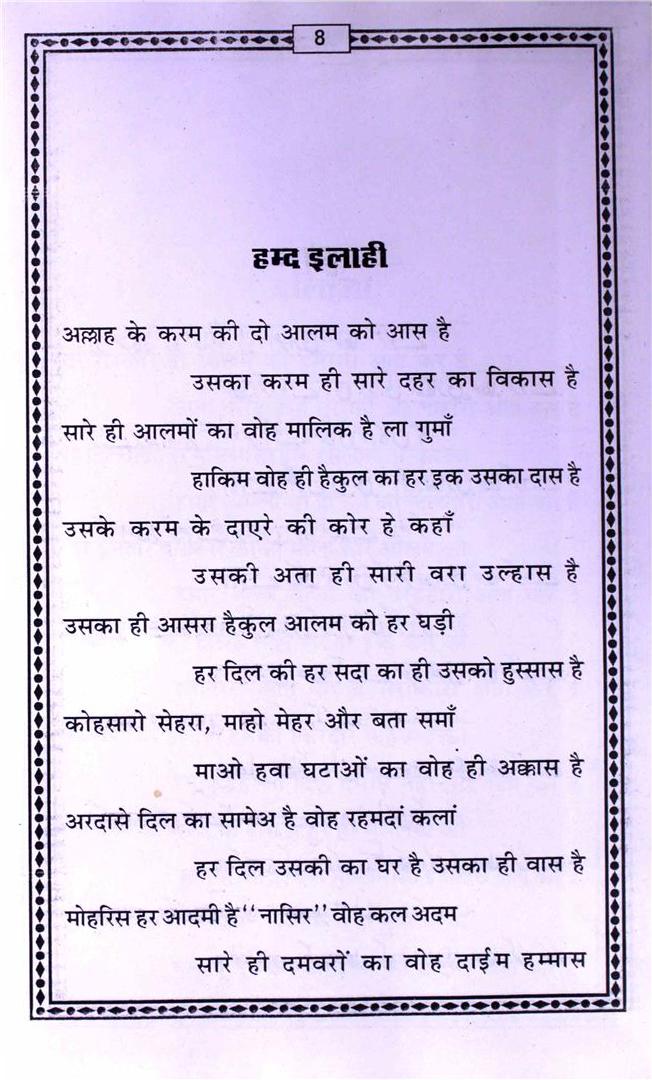 8
हम्द इलाही
अल्लाह के करम की दो आलम को आस है
उसका करम ही सारे दहर का विकास है
सारे ही आलमों का वोह मालिक है ला गुमाँ
हाकिम वोह ही हैकुल का हर इक उसका दास है
उसके करम के दाएरे की कोर हे कहाँ
उसकी अता ही सारी वरा उल्हास है
उसका ही आसरा हैकुल आलम को हर घड़ी
हर दिल की हर सदा का ही उसको हुस्सास है
कोहसारो सेहरा, माहो मेहर और बता समाँ
माओ हवा घटाओं का वोह ही अक्कास है
अरदासे दिल का सामेअ है वोह रहमदां कलां
हर दिल उसकी का घर है उसका ही वास है
मोहरिस हर आदमी है ‘‘नासिर’’ वोह कल अदम
सारे ही दमवरों का वोह दाईम हम्मास